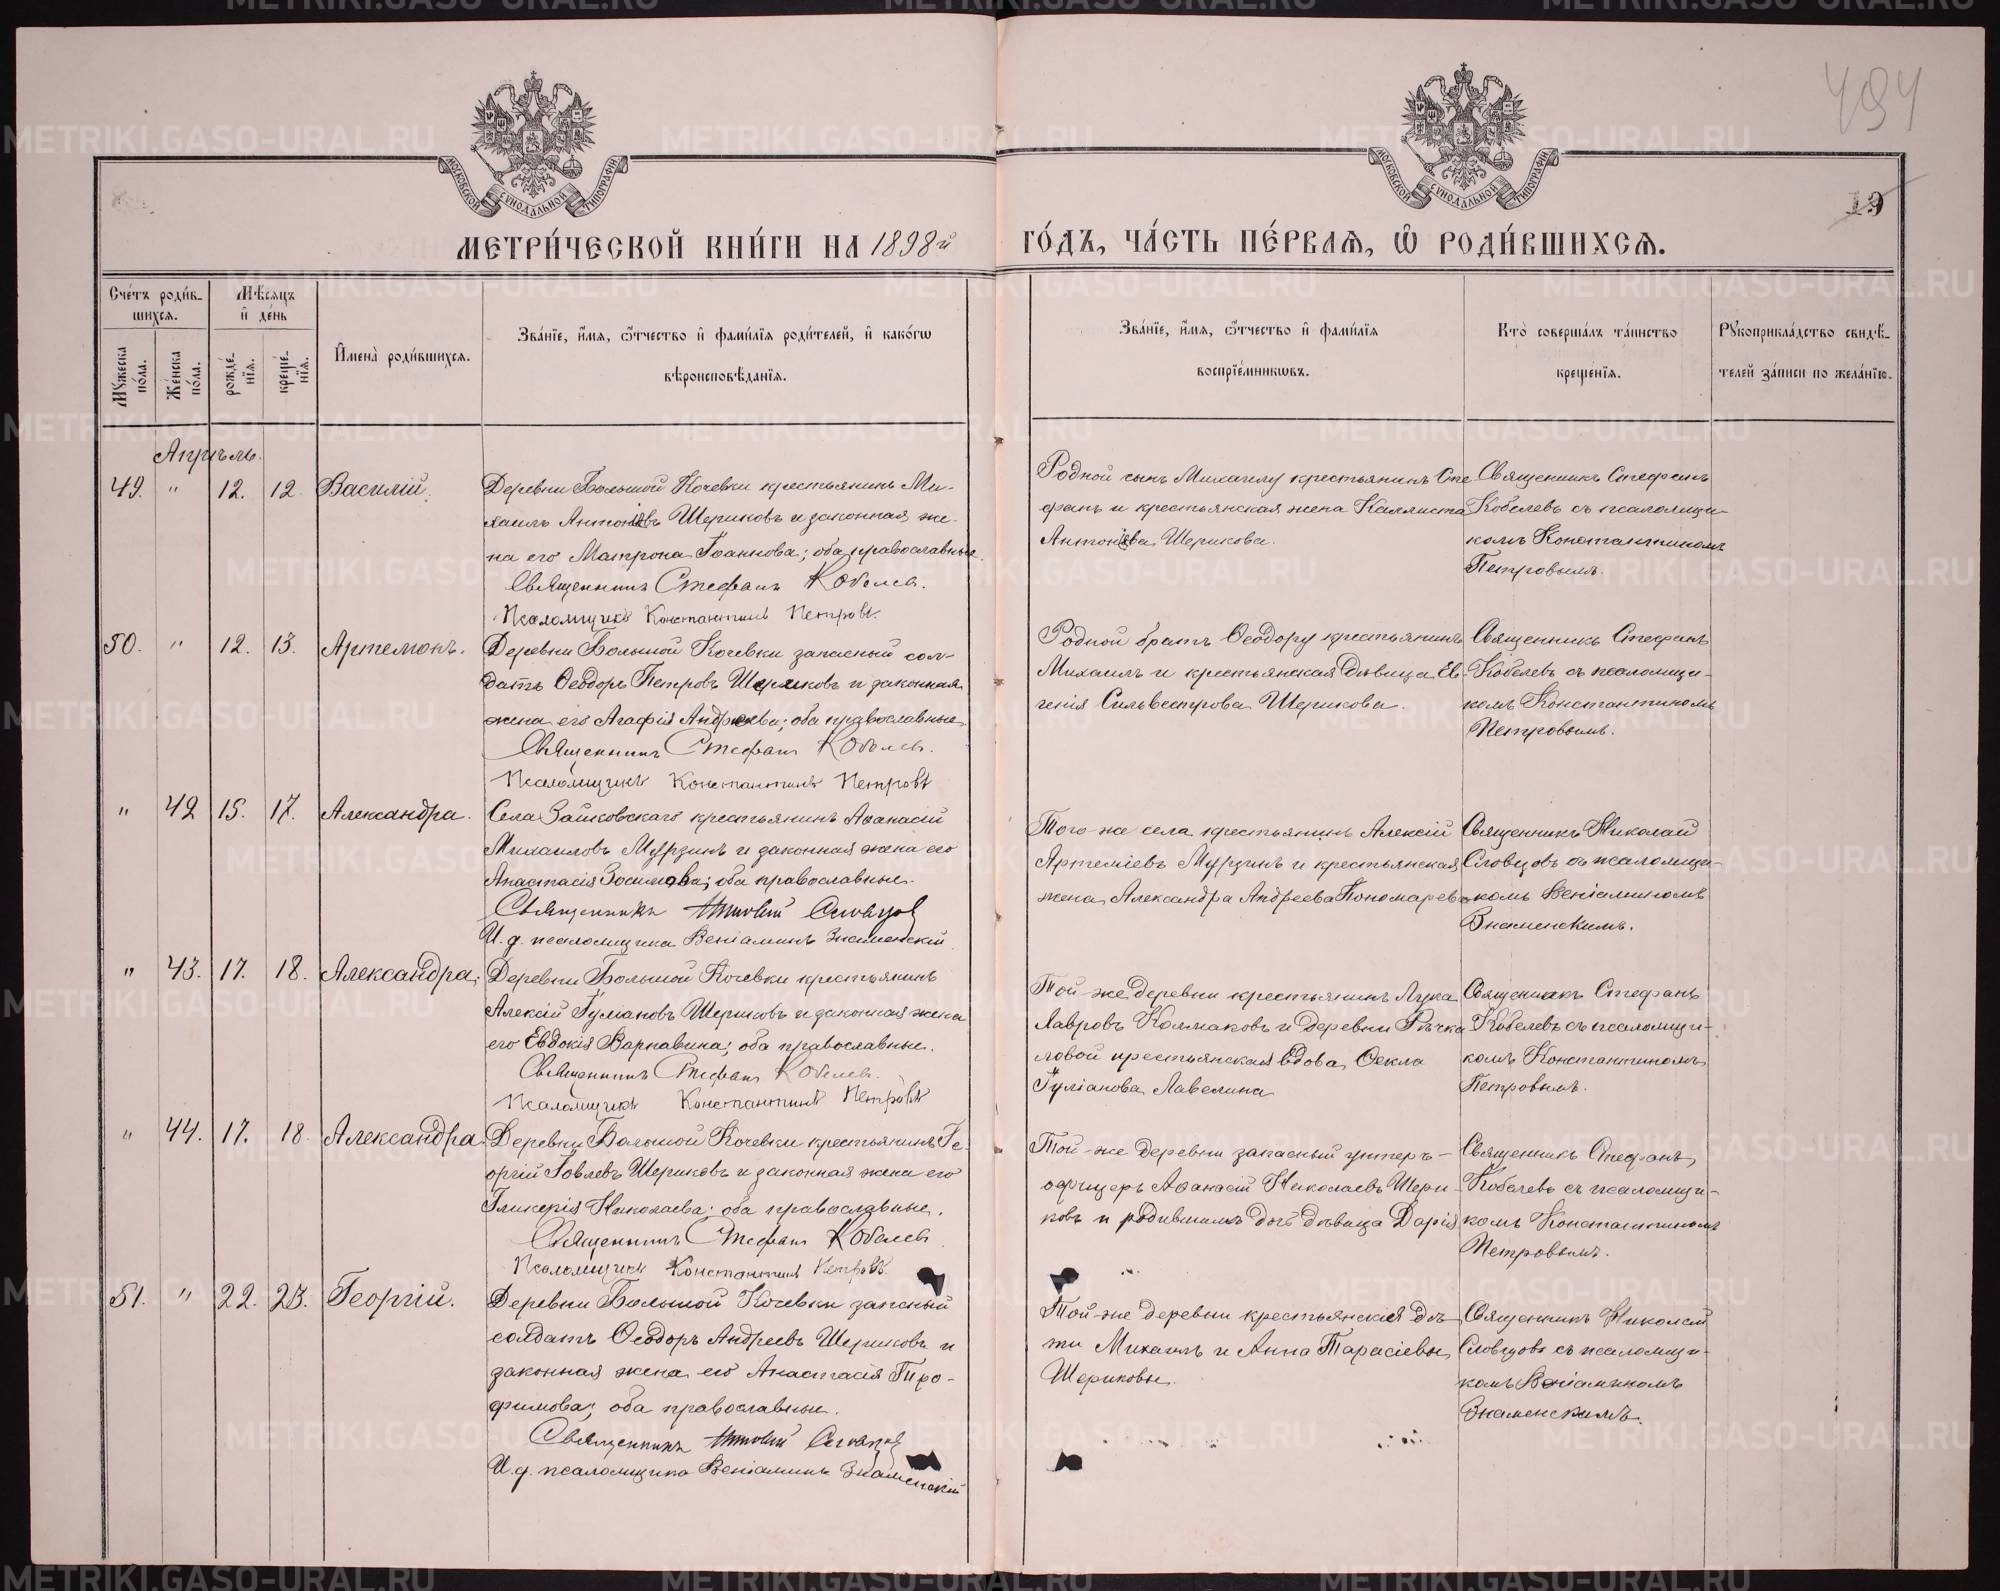 494
19
МОСКОВСКОЙ СѴНОДАЛЬНОЙ ТИПОГРАФІИ
МОСКОВСКОЙ СѴНОДАЛЬНОЙ ТИПОГРАФІИ
МЕТРИ́ЧЕСКОЙ КНИ́ГИ НА 1898й ГО́ДЪ, ЧА́СТЬ ПЕ́РВАѦ, Ѽ РОДИ́ВШИХСѦ.
Сче́тъ роди́в-
шихсѧ.
Мѣ́сѧцъ
и҆ де́нь
Мꙋ́жеска по́ла.
Же́нска по́ла.
рожде́-
нїѧ.
креще́-
нїѧ.
И҆мена̀ роди́вшихсѧ.
Зва́нїе, и҆́мѧ, ѻ҆́тчество и҆ фами́лїѧ роди́телей, и҆ како́гѡ
вѣроисповѣ́данїѧ.
Зва́нїе, и҆́мѧ, ѻ҆́тчество и҆ фами́лїѧ
воспрїе́мникѡвъ.
Кто̀ соверша́лъ та́инство
креще́нїѧ.
Рꙋкоприкла́дство свидѣ́-
телей за́писи по жела́нїю.
Апрѣль.
49. " 12. 12 Василій.
Деревни Большой Кочевки крестьянинъ Ми-
хаилъ Антоніевъ Шориковъ и законная же-
на его Матрона Іоаннова; оба православные.
Священникъ Стефанъ Кобелев.
Псаломщикъ Константинъ Петровъ.
Родной сынъ Михаилу крестьянинъ Сте
фанъ и крестьянская жена Каллиста
Антоніева Шорикова.
Священникъ Стефанъ
Кобелевъ съ псаломщи-
комъ Константиномъ
Петровымъ.
50. " 12. 13. Артемонъ.
Деревни Большой Кочевки запасный сол-
датъ Ѳеодоръ Петровъ Шориковъ и законная
жена его Агафія Андреева; оба православные
Священникъ Стефанъ Кобелев.
Псаломщикъ Константинъ Петровъ
Родной братъ Ѳеодору крестьянинъ
Михаилъ и крестьянская дѣвица Ев-
генія Сильвестрова Шорикова.
Священникъ Стефанъ
Кобелевъ съ псаломщи-
комъ Константиномъ
Петровымъ.
" 42 15. 17. Александра.
Села Зайковскаго крестьянинъ Аѳанасій
Михаиловъ Мурзинъ и законная жена его
Анастасія Зосимова; оба православные.
Священникъ Николай Словцов
И. д. псаломщика Веніаминъ Знаменскій.
Того-же села крестьянинъ Алексій
Артеміевъ Мурзинъ и крестьянская
жена Александра Андреева Пономарева
Священникъ Николай
Словцовъ съ псаломщи-
комъ Веніаминомъ
Знаменскимъ.
" 43. 17. 18. Александра.
Деревни Большой Кочевки крестьянинъ
Алексій Іуліановъ Шориковъ и законная жена
его Евдокія Варнавина; оба православные.
Священникъ Стефанъ Кобелев.
Псаломщикъ Константинъ Петровъ
Той-же деревни крестьянинъ Лука
Лавровъ Колмаковъ и деревни Рѣчка
ловой крестьянская вдова Ѳекла
Іуліанова Лавелина
Священникъ Стефанъ
Кобелевъ съ псаломщи-
комъ Константиномъ
Петровымъ.
" 44. 17. 18. Александра
Деревни Большой Кочевки крестьянинъ Ге-
оргій Іовлевъ Шориковъ и законная жена его
Гликерія Николаева; оба православные.
Священникъ Стефанъ Кобелев.
Псаломщикъ Константинъ Петровъ.
Той-же деревни запасный унтеръ-
офицеръ Аѳанасій Николаевъ Шори-
ковъ и родившимъ дѣвица Дарія
Священникъ Стефанъ
Кобелевъ съ псаломщи-
комъ Константиномъ
Петровымъ.
51. " 22. 23. Георгій.
Деревни Большой Кочевки запасный
солдатъ Ѳеодоръ Андреевъ Шориковъ и
законная жена его Анастасія Тро-
фимова; оба православные.
Священникъ Николай Словцов
И. д. псаломщика Веніаминъ Знаменскій
Той-же деревни крестьянскія дѣ-
ти Михаилъ и Анна Тарасіевы
Шориковы.
Священникъ Николай
Словцовъ съ псаломщи-
комъ Веніаминомъ
Знаменскимъ.
METRIKI.GASO-URAL.RU